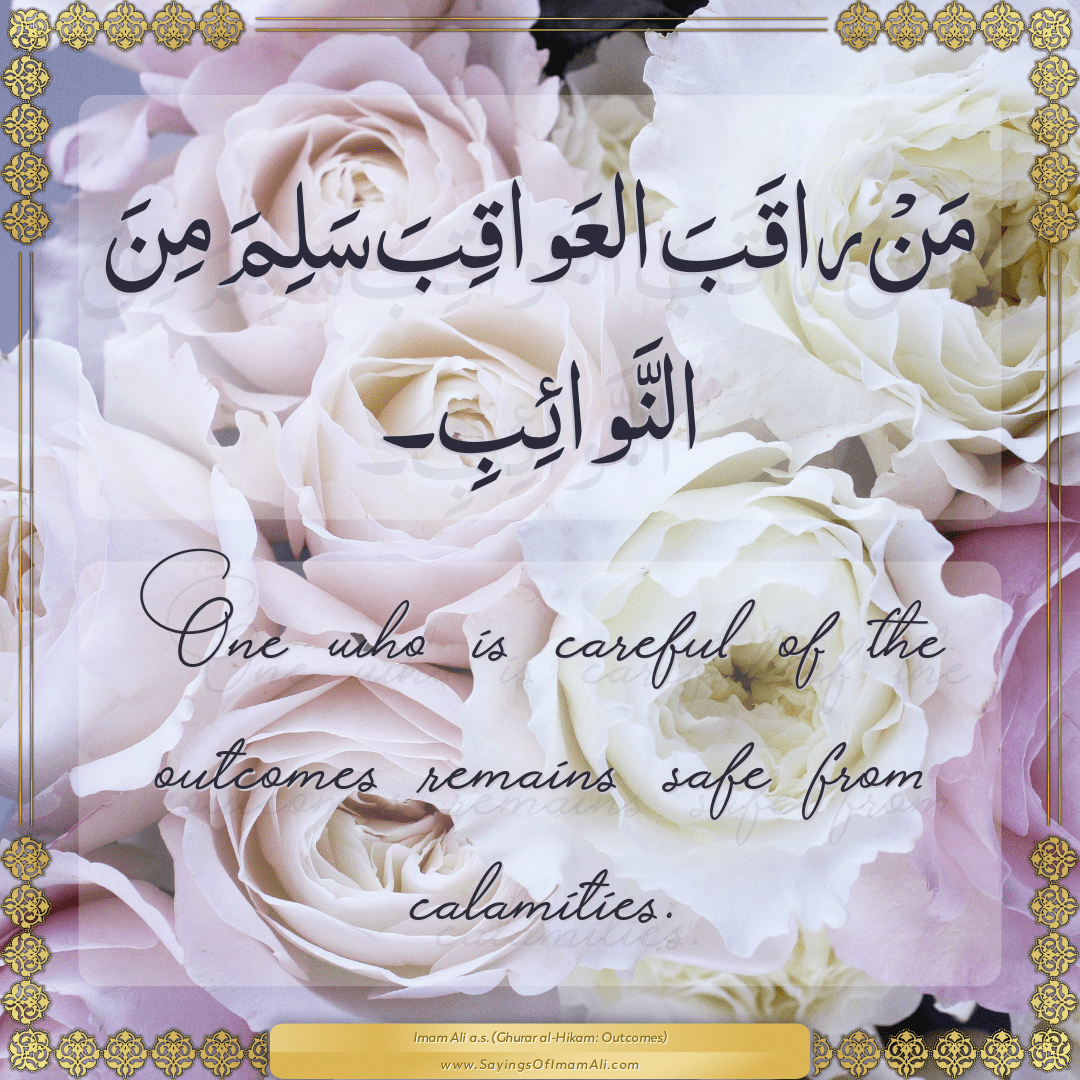 مَنْ راقَبَ العَواقِبَ سَلِمَ مِنَ
النَّوائِبِـ
One who is careful of the
outcomes remains safe from
calamities.
Imam Ali a.s. (Ghurar al-Hikam: Outcomes)
www.SayingsOfImamAli.com